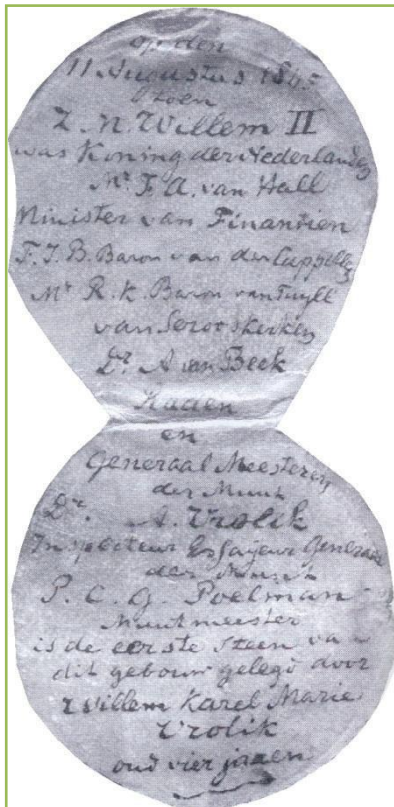 op den
11 Augustus 1845
toen
Z. M. Willem II
was Koning der Nederlanden
Mr F. A. van Hall
Minister van Finantien
F. J. B. Baron van der Cappellen
Mr R. K. Baron van Tuyll
van Serooskerken
Dr A van Beek
Raden
en
Generaal Meesteren
der Munt
Dr. A. Vrolik
Inspecteur Essayeur Generaal
der Munt
P. C. G. Poelman
Muntmeester
is de eerste steen van
dit gebouw gelegd door
Willem Karel Marie
Vrolik
oud vier jaren